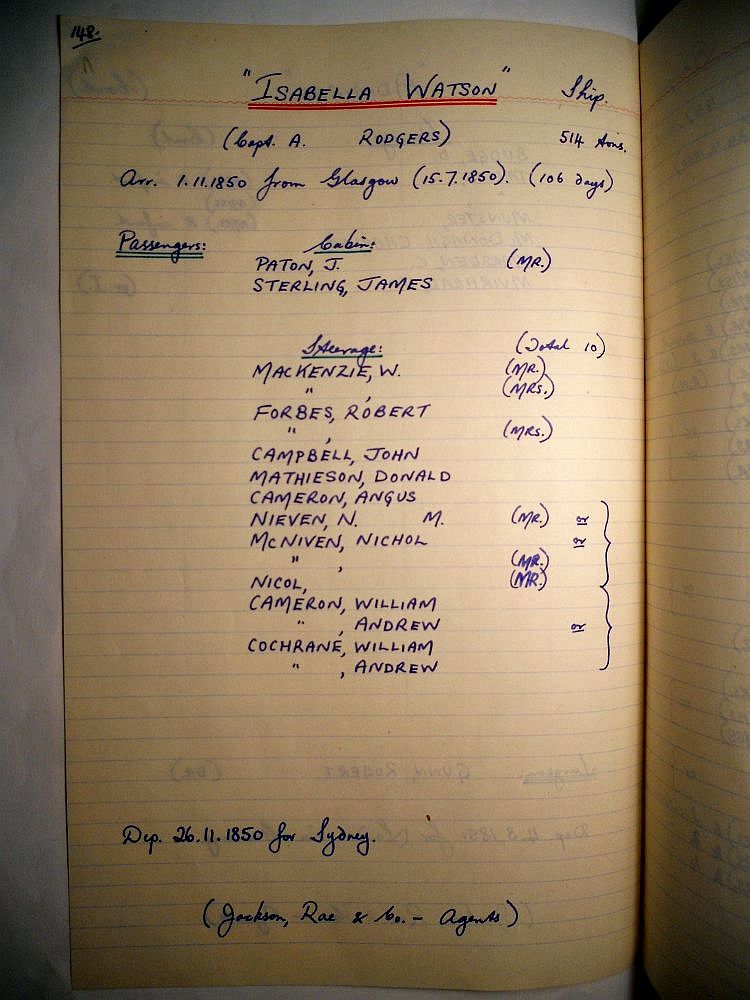 148.
"ISABELLA WATSON" Ship.
(Capt. A. RODGERS) 514 tons.
Arr. 1.11.1850 from Glasgow (15.7.1850). (106 days)
Passengers: Cabin:
PATON, J. (MR.)
STERLING, JAMES
Steerage: (Total 10)
MACKENZIE, W. (MR.)
" , (MRS.)
FORBES, ROBERT
" , (MRS.)
CAMPBELL, JOHN
MATHIESON, DONALD
CAMERON, ANGUS
NIEVEN, N. M. (MR.) or
MCNIVEN, NICHOL or
" , (MR.)
NICOL, (MR.)
CAMERON, WILLIAM
" , ANDREW or
COCHRANE, WILLIAM
" , ANDREW
Dep. 26.11.1850 for Sydney.
(Jackson, Rae & Co. - Agents)